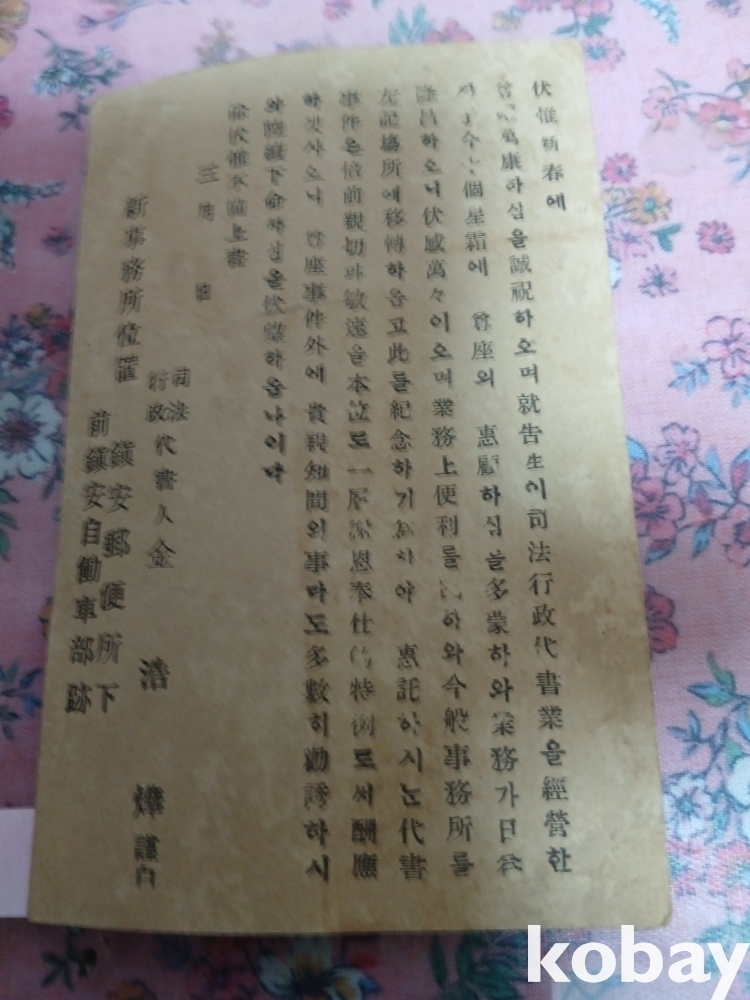 伏惟新春에
萬康하심을誠祝하오며就告生이司法行政代書業을經營한
今 個星霜에 尊座의 惠顧하심을多蒙하와業務가日益
隆昌하오니伏感萬々이오며業務上便利를 하와今般事務所를
左記場所에移轉하옵고此를紀念하기 야 惠託하시는代書
事件은倍前親切과敏速을 로一層 恩奉仕的特例로써酬應
하겟사오니 尊座事件外에貴親知間의事라도多數히勸誘하시
와 下 을伏望하옵나이다
上書
新事務所位置
鎭安郵便所下
前鎭安自働車部跡
司法
行政代書人金 浩 燁謹白
kobay